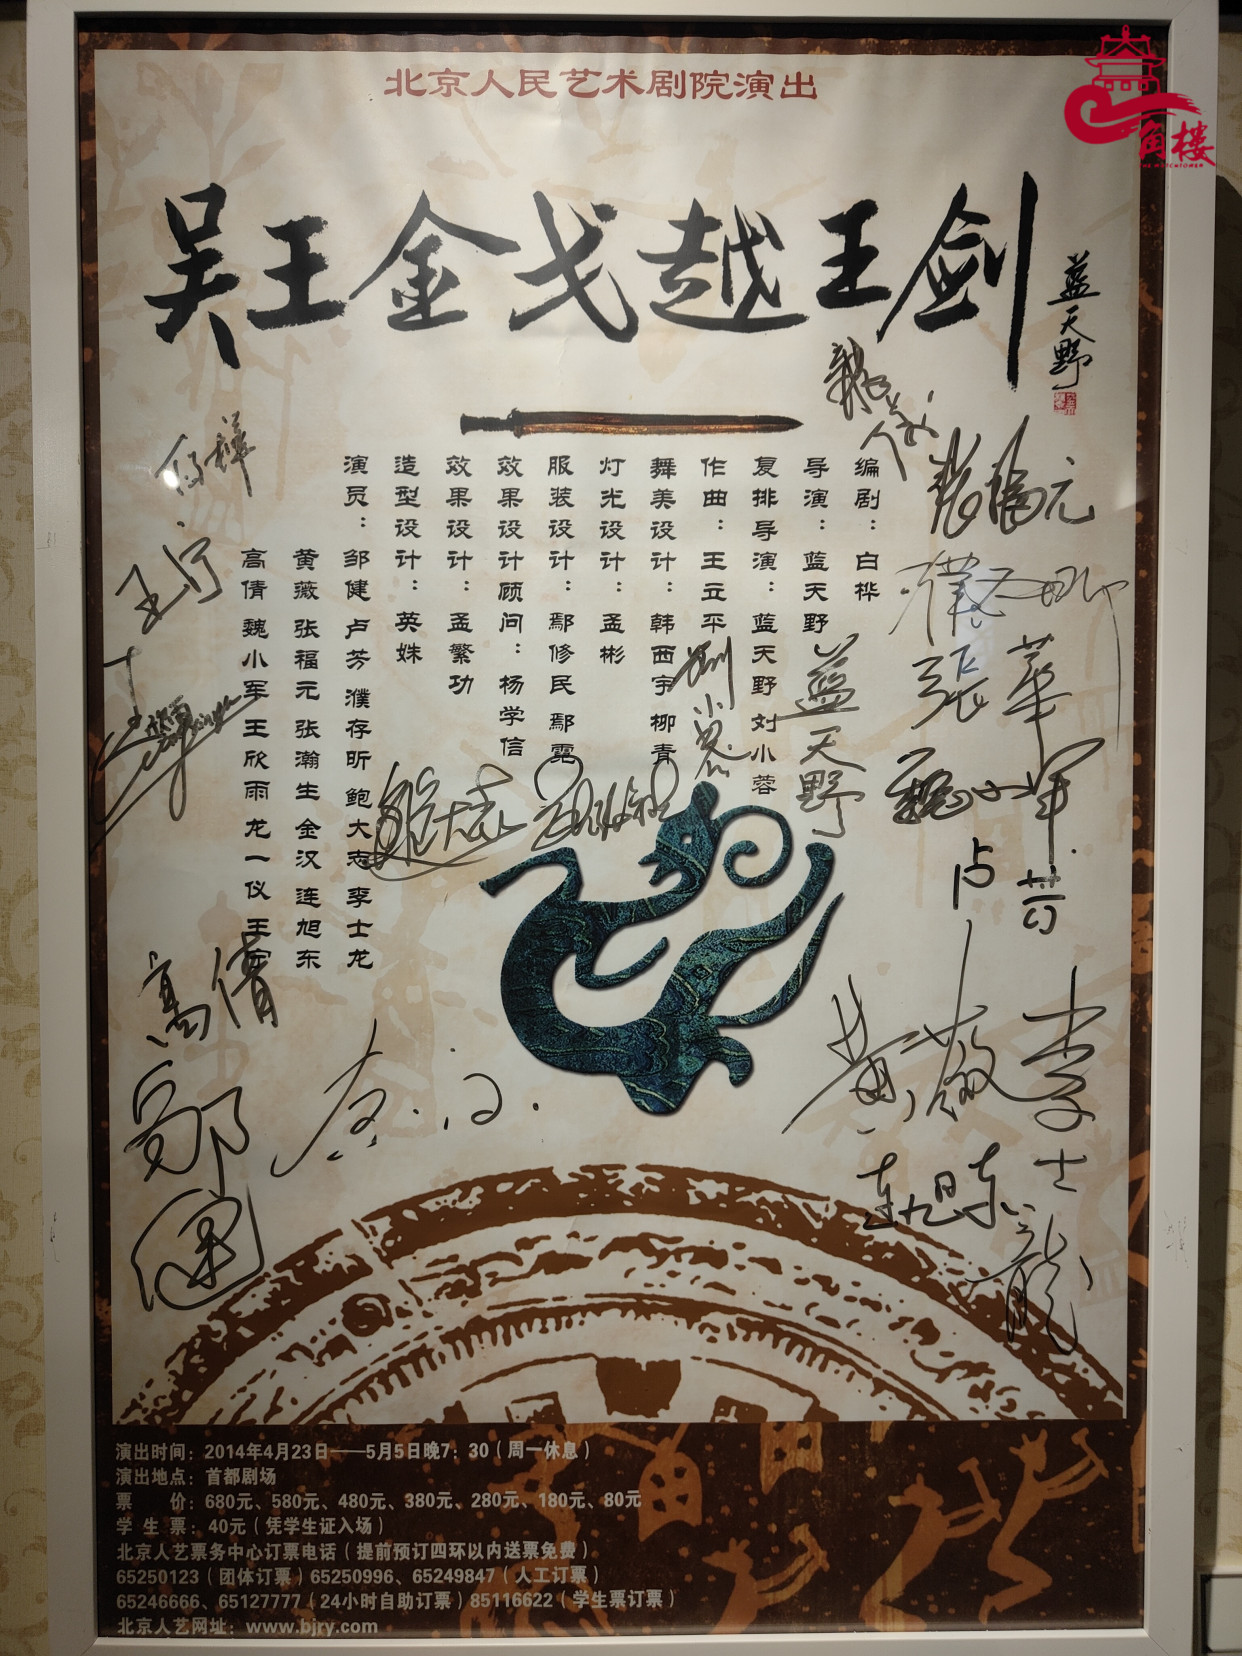 北京人民艺术剧院演出
角楼
吴王金戈越王剑
蓝天野
编剧：白桦
导演：蓝天野
复排导演：蓝天野 刘小蓉
作曲：王立平
舞美设计：韩西宇 柳青
灯光设计：孟彬
服装设计：鄢修民 鄢霓
效果设计顾问：杨学信
效果设计：孟繁功
造型设计：英姝
演员：邹健 卢芳 濮存昕 鲍大志 李士龙
黄薇 张福元 张瀚生 金汉 连旭东
高倩 魏小军 王欣雨 龙一仪 王宁
张福元
张华
蓝天野
魏小军
卢芳
王宁
高倩
邹健
黄薇
李士龙
连旭东
演出时间：2014年4月23日——5月5日晚7：30（周一休息）
演出地点：首都剧场
票 价：680元、580元、480元、380元、280元、180元、80元
学 生 票：40元（凭学生证入场）
北京人艺票务中心订票电话（提前预订四环以内送票免费）
65250123（团体订票）65250996、65249847（人工订票）
65246666、65127777（24小时自助订票）85116622（学生票订票）
北京人艺网址：www.bjry.com